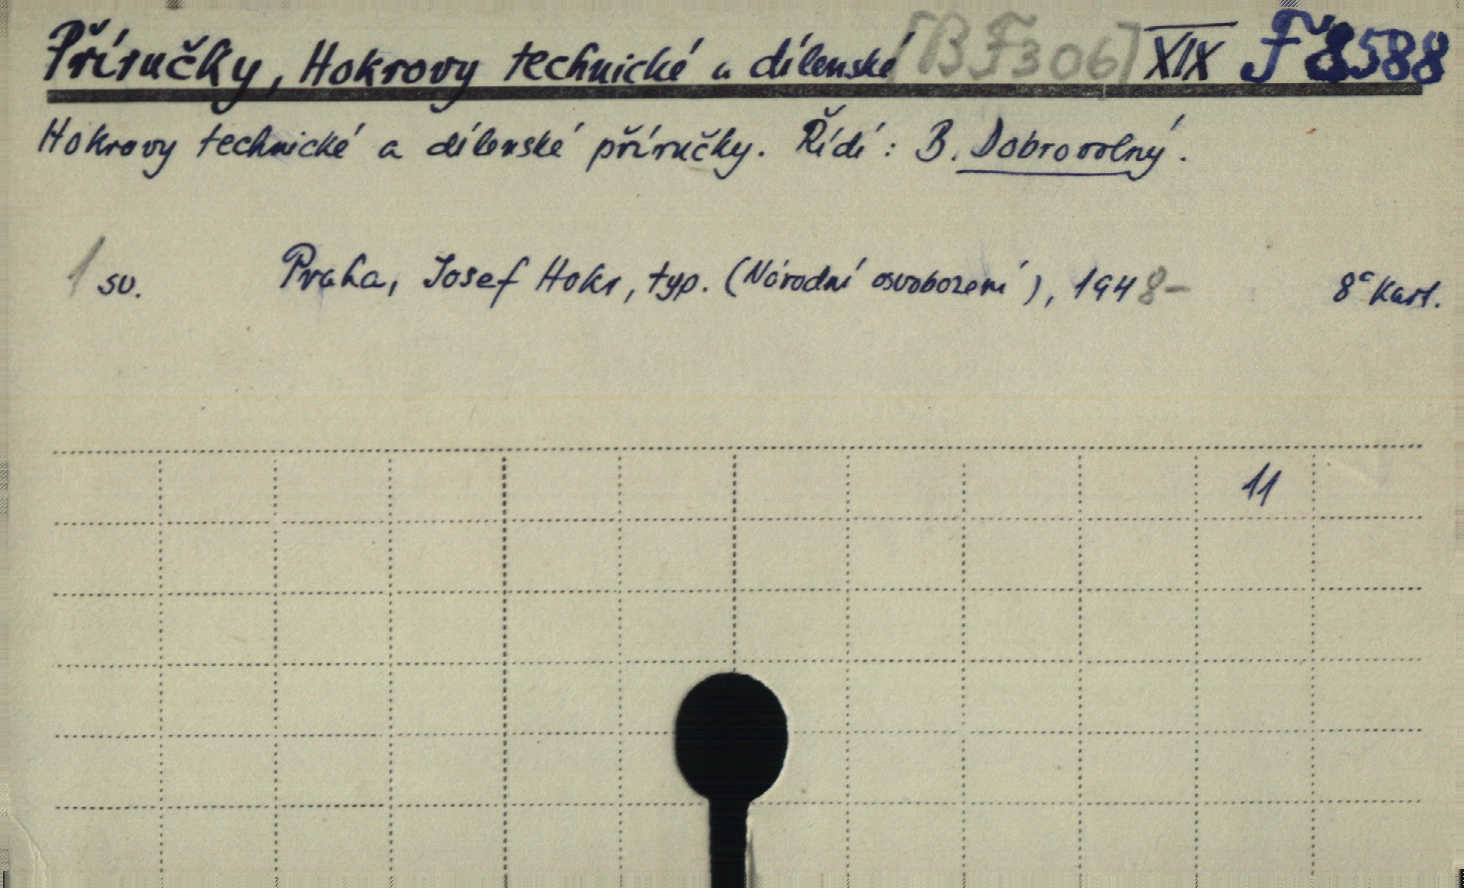 Příručky, Hokrovy technické a dílenské [BF306] XIX F 8588
Hokrovy technické a dílenské příručky. Řídí: B. Dobrovolný.
1 sv. Praha, Josef Hokr, typ. (Národní osvobození), 1948- 8° Kart.
11